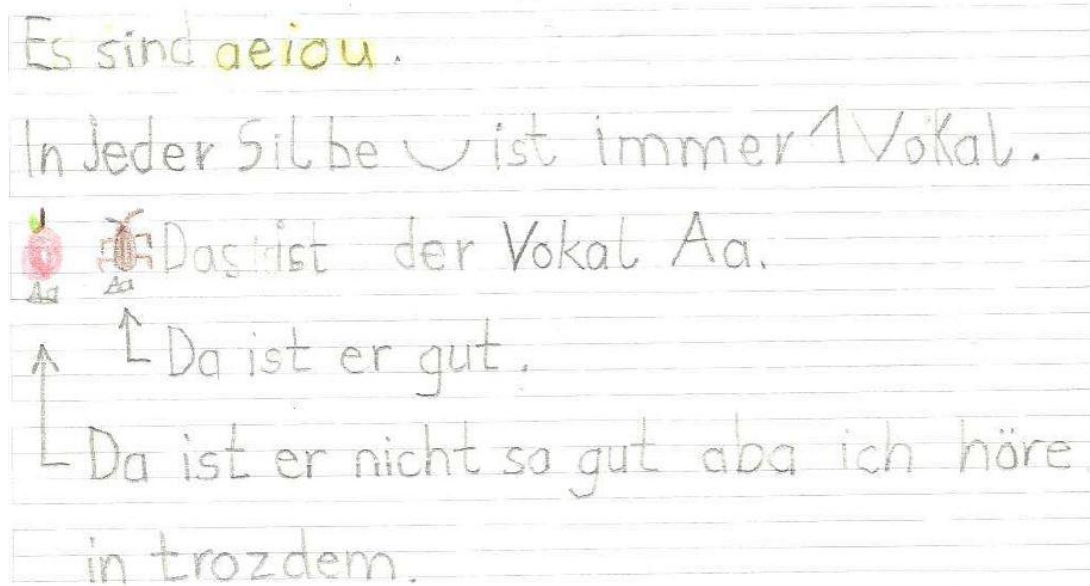 Es sind aeiou.
In Jeder Silbe ist immer 1 Vokal.
Das ist der Vokal Aa.
Aa Aa
Da ist er gut.
Da ist er nicht so gut aba ich höre
in trozdem.